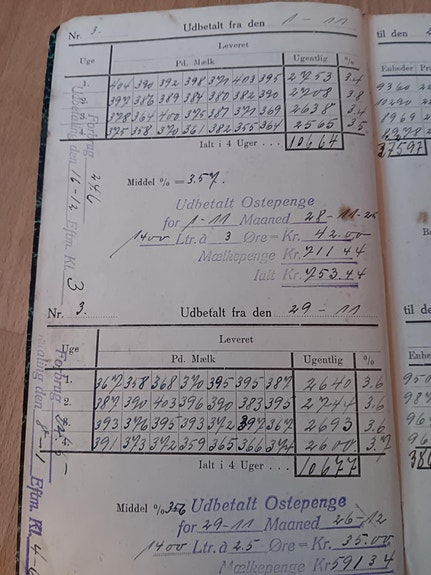 Nr. 3. Udbetalt fra den 1-11
til den
Leveret
Uge Pd. Mælk Ugentlig %
Enheder
1. 404 390 392 398 370 403 395 2753 3.4 9360
397 386 389 384 380 382 390 2708 3.8
378 364 400 375 387 370 369 2638 3.4 8969
375 358 370 361 382 355 364 2565 3.5
Ialt i 4 Uger . . . 10664 37597
Middel % = 3.57.
Udbetalt Ostepenge
for 1-11 Maaned 28-11-25
1400 Ltr. à 3 Øre = Kr. 42.00
Mælkepenge Kr. 711 44
Ialt Kr. 753.44
Forbrug
Udbetaling den 11-12 Eftm. Kl. 3
Nr. 3. Udbetalt fra den 29-11
til de
Leveret
Uge Pd. Mælk Ugentlig %
Enhe
1. 367 358 368 370 395 395 387 2640 3.6
2. 387 390 403 396 390 383 395 2744 3.6
393 376 395 393 372 397 367 2693 3.6
391 373 372 359 365 366 374 2600 3.7
Ialt i 4 Uger . . . 10677
Middel % 356 Udbetalt Ostepenge
for 29-11 Maaned 26-12
1400 Ltr. à 2.5 Øre = Kr. 35.00
Mælkepenge Kr 591 34
Forbrug
den 8-1 Eftm. Kl. 4-6